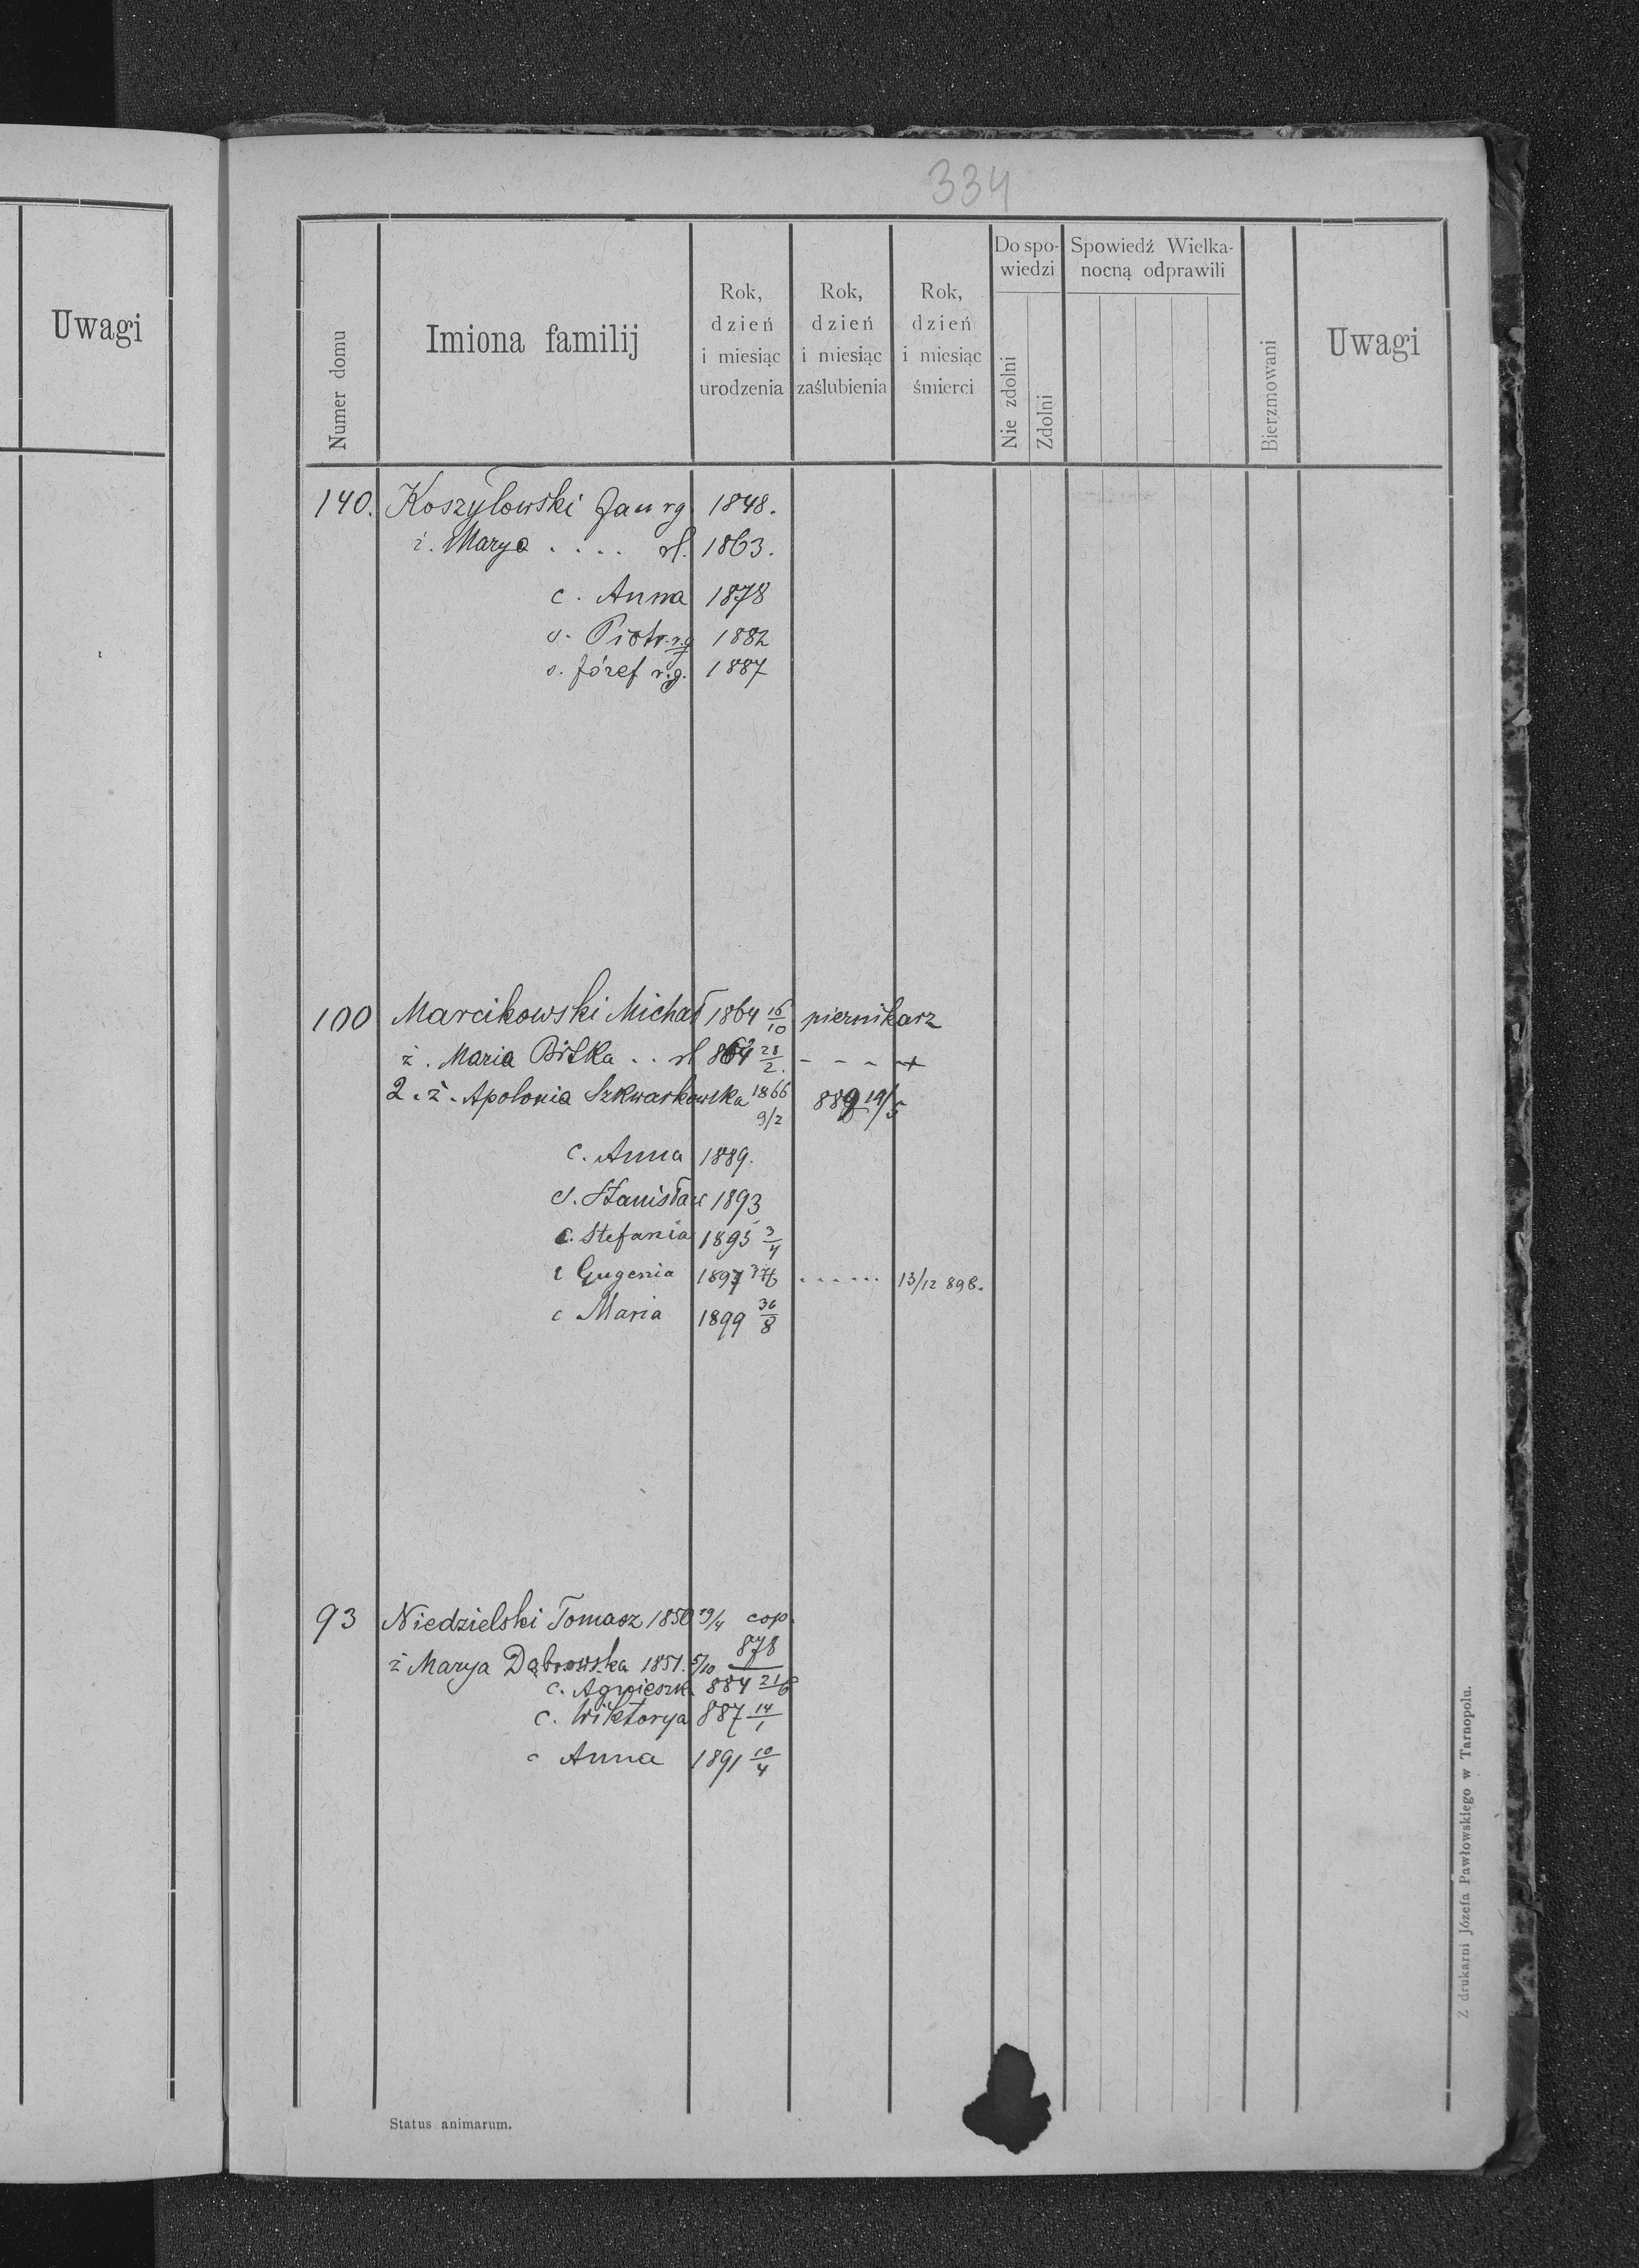 Uwagi
334
Numer domu
Imiona familij
Rok, dzień i miesiąc urodzenia
Rok, dzień i miesiąc zaślubienia
Rok, dzień i miesiąc śmierci
Do spowiedzi
Nie zdolni
Zdolni
Spowiedź Wielkanocną odprawili
Bierzmowani
Uwagi
140. Koszylowski Jan rg 1848.
ż. Marya . . . . rl. 1863.
c. Anna 1878
s. Piotr r.g 1882
s. Józef r.g. 1887
100 Marcikowski Michał 1864 16/10 piernikarz
ż. Maria . . rl 864 28/2. - - - +
2. ż. Apolonia Szkwarkowska 1866 9/2 889 19/5
c. Anna 1889.
s. Stanisław 1893
c. Stefania 1895 3/4
c Eugenia 1897 . . . . . . 13/12 898.
c Maria 1899 30/8
93 Niedzielski Tomasz 1850 29/4 cop.
878
ż Marya Dąbrowska 1851. 5/10
c. Agnieszk. 884 21/6
c. Wiktorya 887 14/1
c Anna 1891 10/4
Status animarum.
Z drukarni Józefa Pawłowskiego w Tarnopolu.